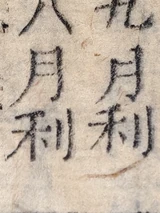 九月利
八月利